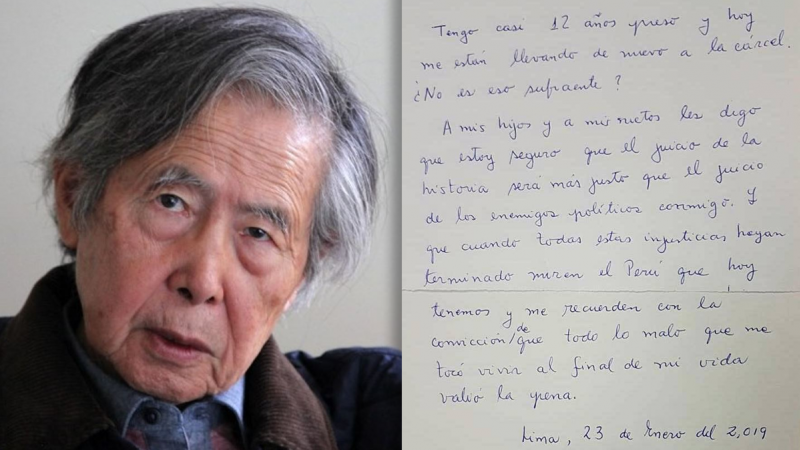 Tengo casi 12 años preso y hoy
me están llevando de nuevo a la cárcel.
¿No es eso sufraente?
A mis hijos y a mis nietos les digo
que estoy seguro que el juicio de la
historia será más justo que el juicio
de los enemigos políticos conmigo. Y
que cuando todas estas injusticias hayan
terminado miren el Perú que hoy
tenemos y me recuerden con la
convicción/de que todo lo malo que me
tocó vivir al final de mi vida
valió la pena.
Lima, 23 de Enero del 2,019